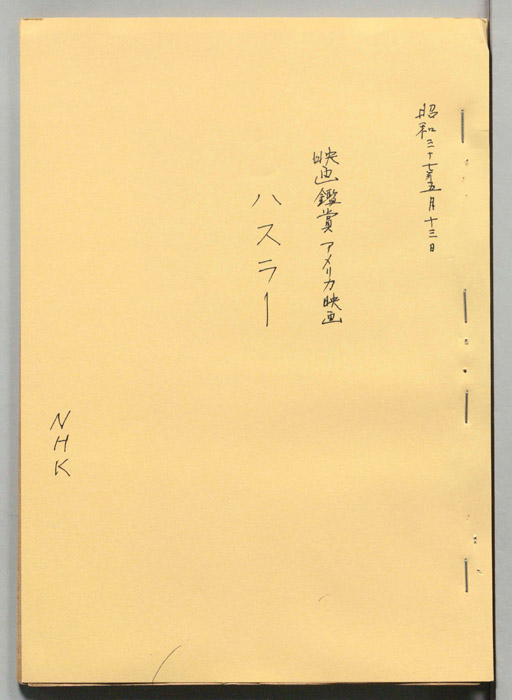 昭和三十七年五月十三日
映画鑑賞 アメリカ映画
ハスラー
NHK